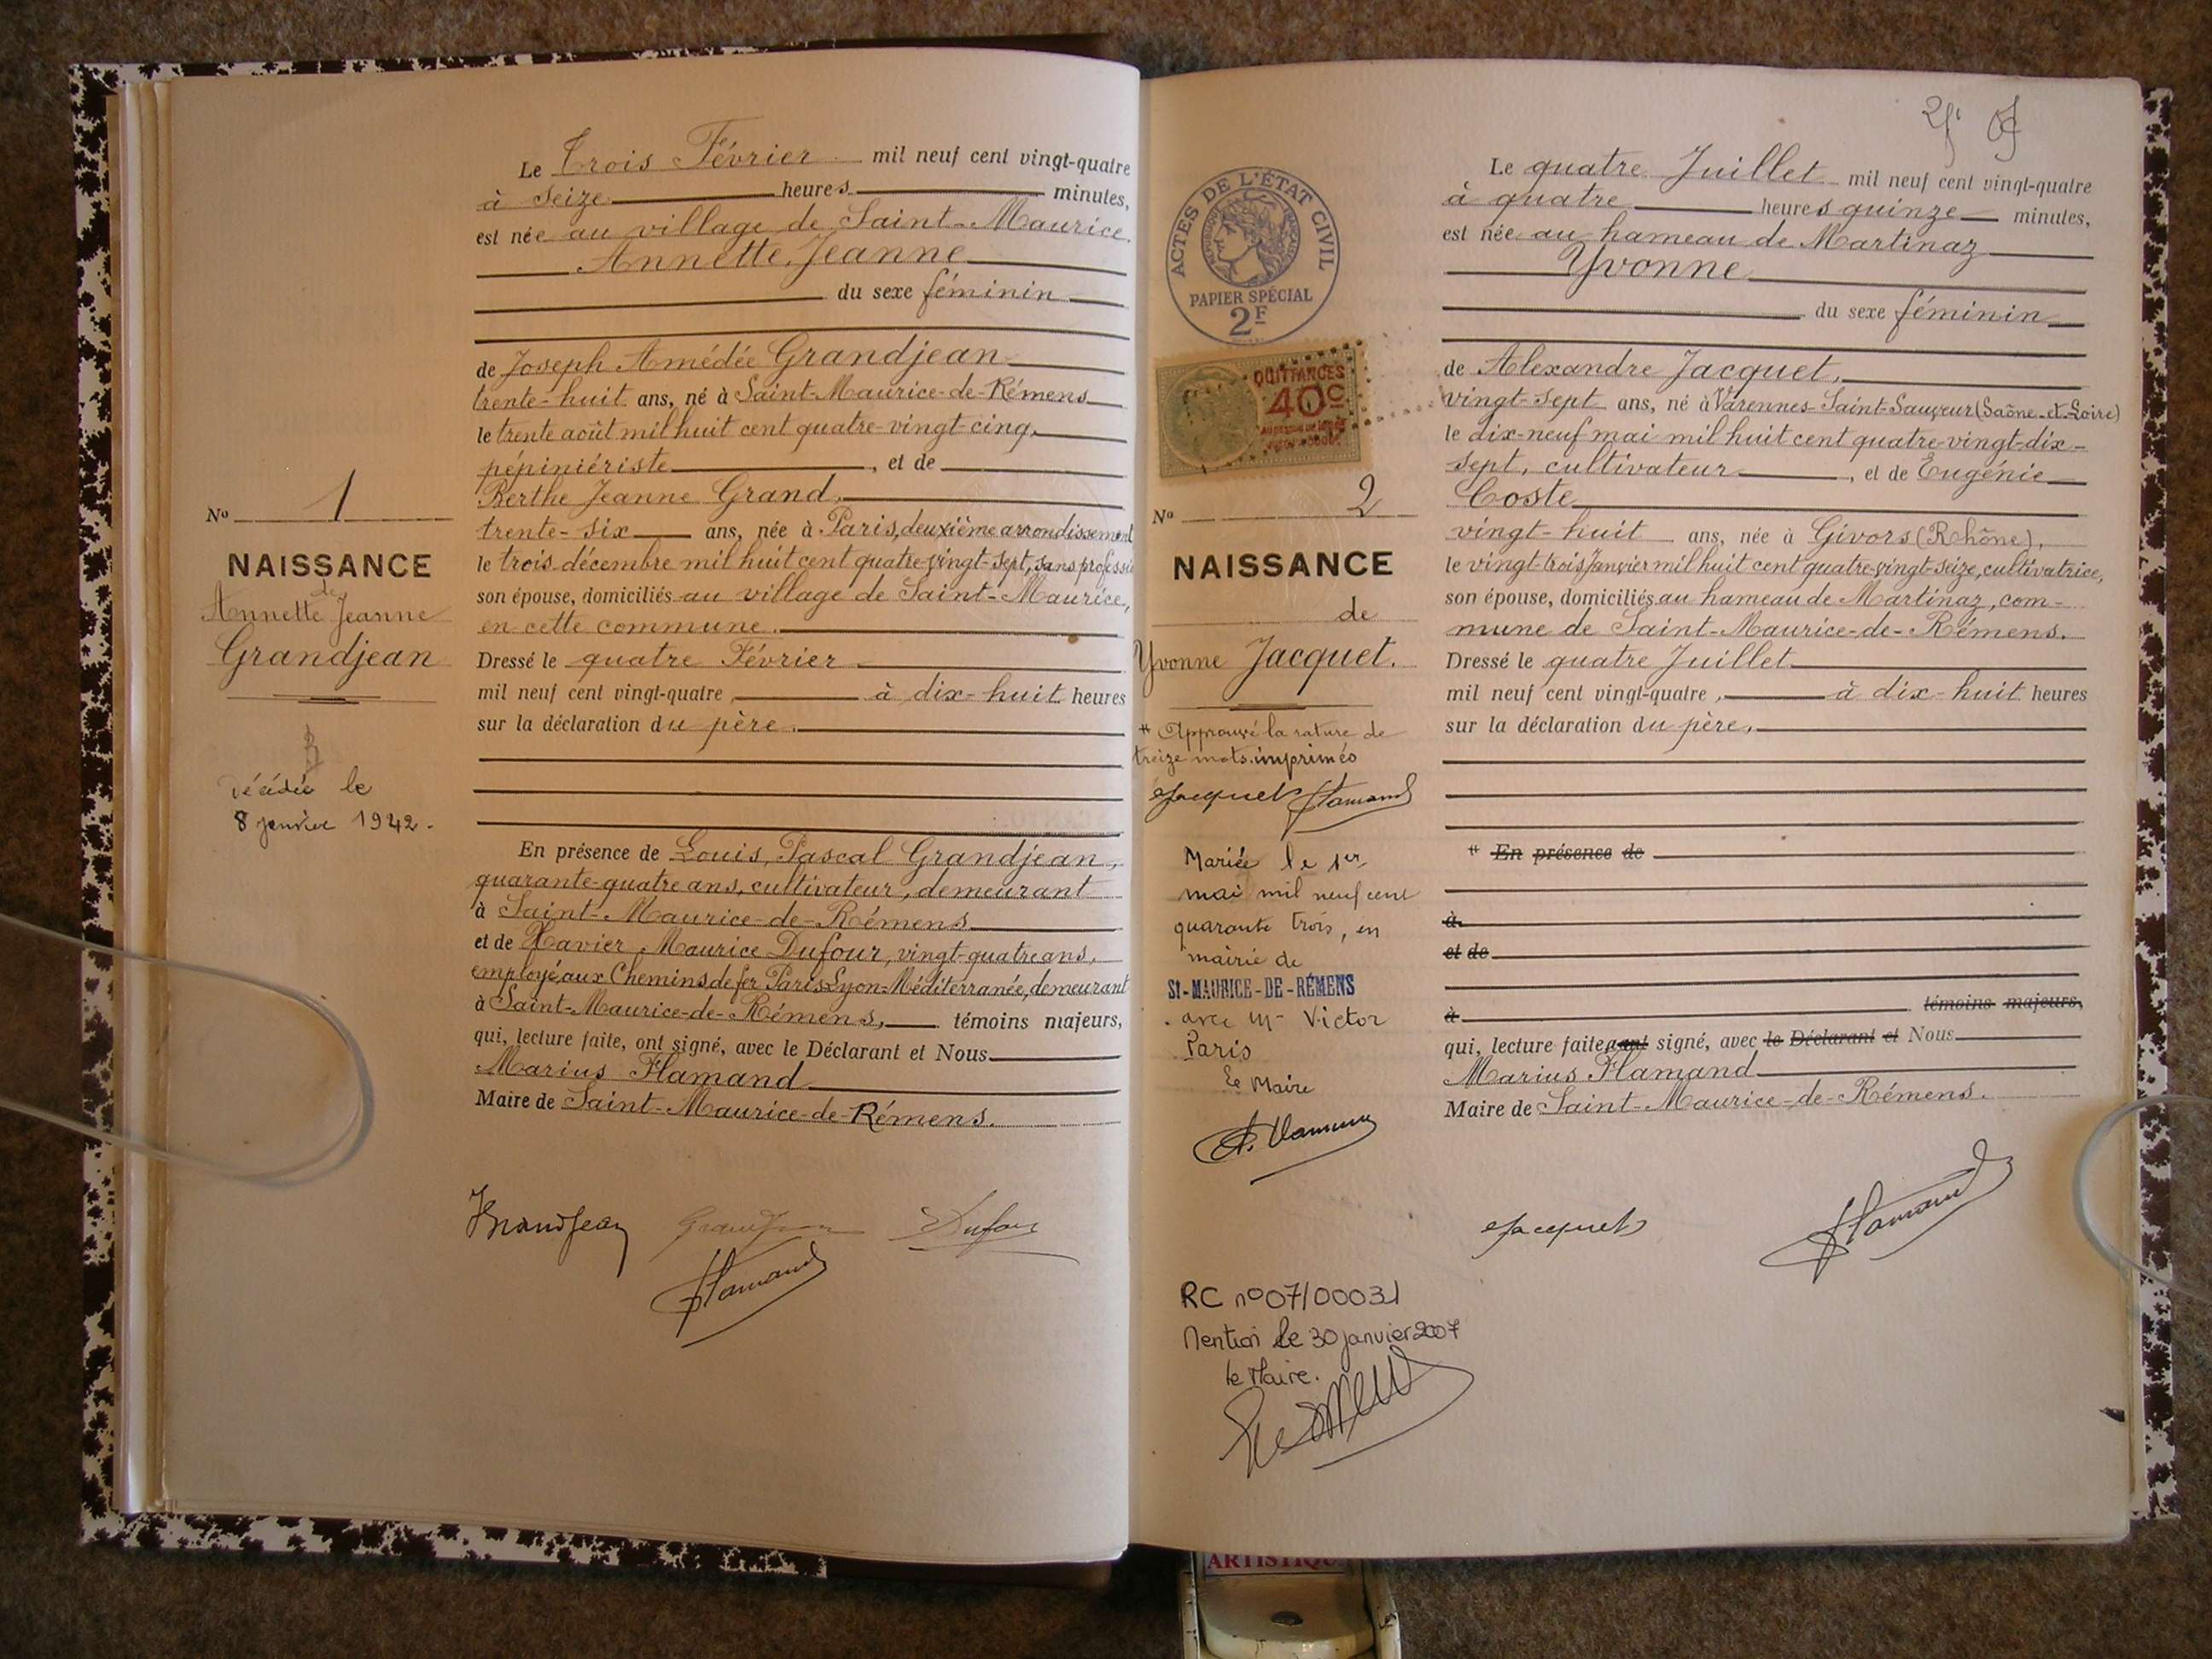 Le Trois Février mil neuf cent vingt-quatre
à seize heures minutes,
est née au village de Saint-Maurice
Annette Jeanne
du sexe féminin
de Joseph Amédée Grandjean
trente-huit ans, né à Saint-Maurice-de-Rémens
le trente août mil huit cent quatre-vingt-cinq,
pépiniériste, et de
Berthe Jeanne Grand,
trente-six ans, née à Paris, deuxième arrondissement
le trois décembre mil huit cent quatre-vingt-sept, sans profession
son épouse, domiciliés au village de Saint-Maurice,
en cette commune.
Dressé le quatre Février
mil neuf cent vingt-quatre, à dix-huit heures
sur la déclaration du père.
En présence de Louis, Pascal Grandjean,
quarante-quatre ans, cultivateur, demeurant
à Saint-Maurice-de-Rémens
et de Xavier Maurice Dufour, vingt-quatre ans,
employé aux Chemins de fer Paris-Lyon-Méditerranée, demeurant
à Saint-Maurice-de-Rémens, témoins majeurs,
qui, lecture faite, ont signé, avec le Déclarant et Nous
Marius Flamand
Maire de Saint-Maurice-de-Rémens.
Grandjean Grandjean Dufour
Flamand
No 1
NAISSANCE
de
Annette Jeanne
Grandjean
Décédée le
8 janvier 1942.
ACTES DE L'ÉTAT CIVIL
PAPIER SPÉCIAL
2F
QUITTANCES
40c
No 2
NAISSANCE
de
Yvonne Jacquet.
# Approuvé la rature de
treize mots imprimés
Jacquet Flamand
Mariée le 1er
mai mil neuf cent
quarante trois, en
mairie de
St-MAURICE-DE-RÉMENS
avec Mr Victor
Paris
Le Maire
RC n°07/00031
Mention le 30 janvier 2007
le Maire.
Le quatre Juillet mil neuf cent vingt-quatre
à quatre heures quinze minutes,
est née au hameau de Martinaz
Yvonne
du sexe féminin
de Alexandre Jacquet,
vingt-sept ans, né à Varennes-Saint-Sauveur (Saône-et-Loire)
le dix-neuf mai mil huit cent quatre-vingt-dix-
sept, cultivateur, et de Eugénie
Coste
vingt-huit ans, née à Givors (Rhône),
le vingt-trois Janvier mil huit cent quatre-vingt-seize, cultivatrice,
son épouse, domiciliés au hameau de Martinaz, com-
mune de Saint-Maurice-de-Rémens.
Dressé le quatre Juillet
mil neuf cent vingt-quatre, à dix-huit heures
sur la déclaration du père,
# En présence de
à
et de
à témoins majeurs,
qui, lecture faite a ont signé, avec le Déclarant et Nous
Marius Flamand
Maire de Saint-Maurice-de-Rémens.
Jacquet Flamand
ARTISTIQU